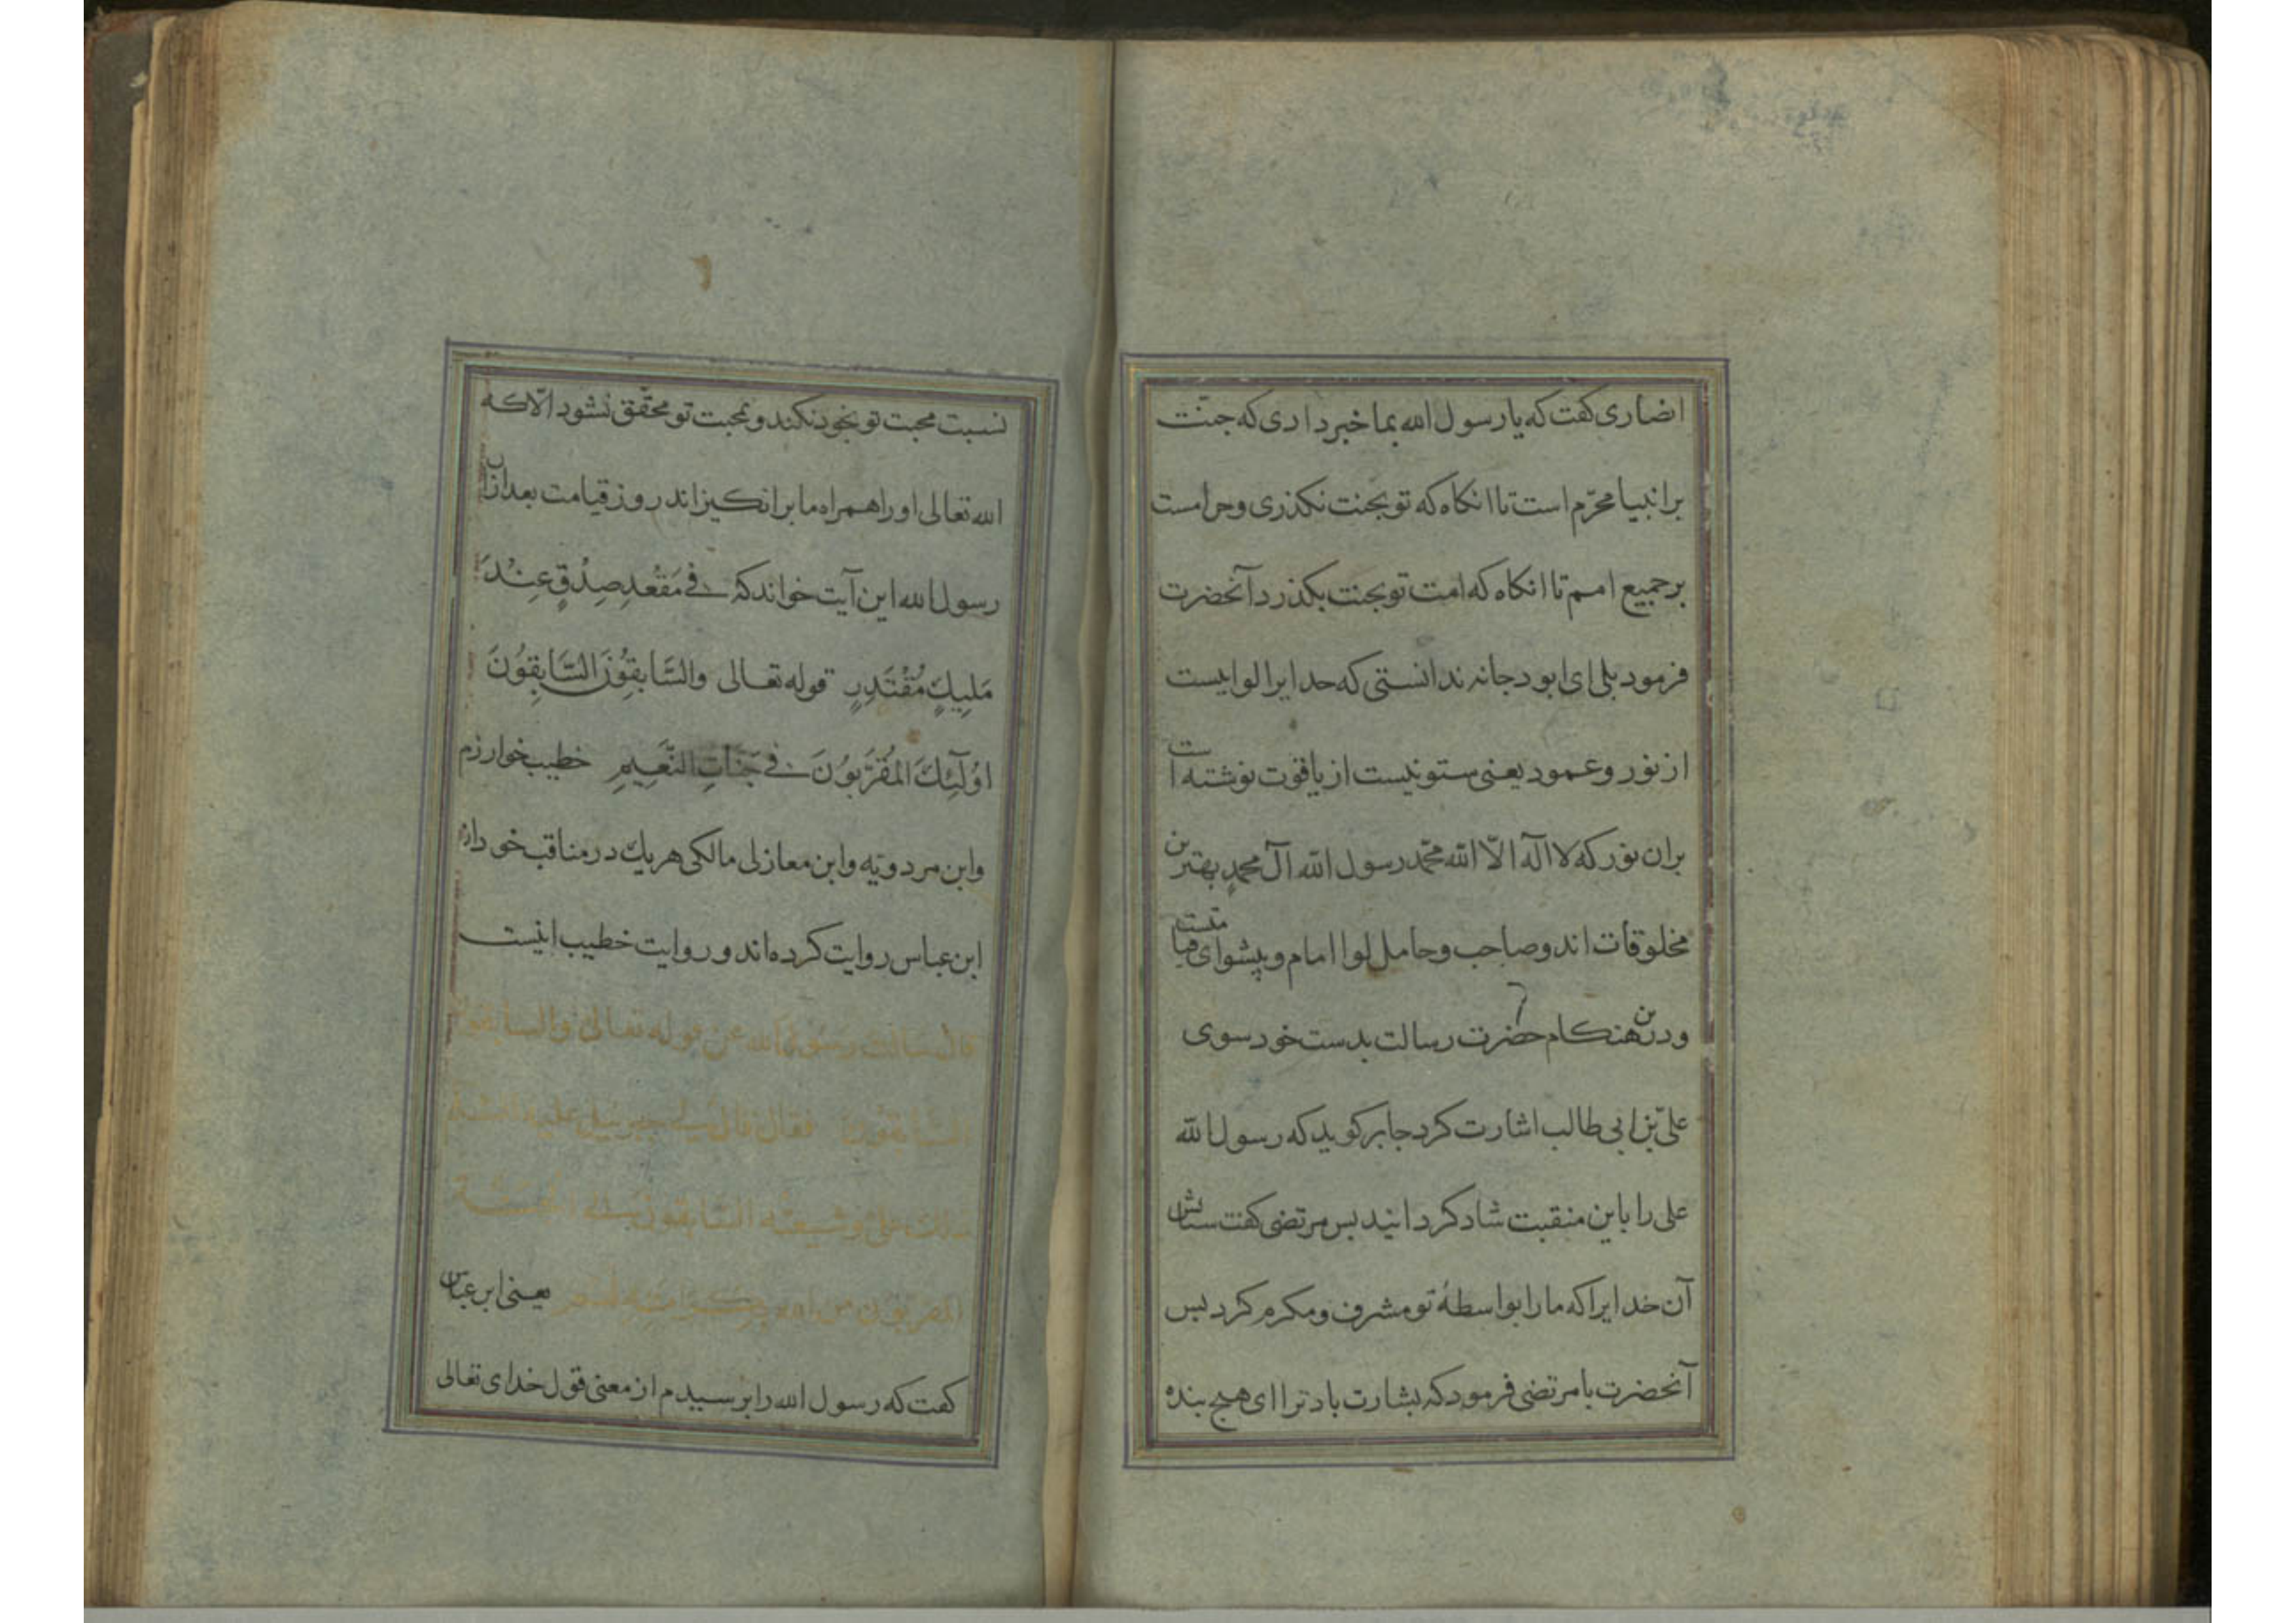 انصاری کفت که یا رسول الله بما خبر داری که جنّت
بر انبیا محرّم است تا انکاه که تو بجنت نکذری و حرامست
بر جمیع امم تا انکاه که امت تو بجنت بکذرد آنحضرت
فرمود بلی ای ابو دجانه ندانستی که خدایرا لوایست
از نور و عمود یعنی ستونیست از یاقوت نوشته است
بران نور که لا اله الّا الله محمّد رسول الله آل محمدٍ بهترین
مخلوقات اند و صاحب و حامل لوا امام و پیشوای قیامتست
و درین هنکام حضرت رسالت بدست خود سوی
علیّ بن ابی طالب اشارت کرد جابر کوید که رسول الله
علی را باین منقبت شاد کردانید بس مرتضی کفت ستایش
آن خدایرا که ما را بواسطهٔ تو مشرف و مکرم کرد بس
آنحضرت با مرتضی فرمود که بشارت باد ترا ای هیج بنده
نسبت محبت تو بخود نکند و محبت تو محقّق نشود الّا که
الله تعالی او را همراه ما برانکیزاند روز قیامت بعد ازان
رسول الله این آیت خواند که فے مَقْعَدِ صِدْقٍ عِنْدَ
مَلِیكٍ مُقْتَدِرٍ قوله تعالی والسَّابِقُونَ السَّابِقُونَ
اُولَٓئِكَ الْمُقَرَّبُونَ فے جَنَّاتِ النَّعِیمِ خطیب خوارزم
و ابن مردویه و ابن معازلی مالکی هر یك در مناقب خود از
ابن عباس روایت کرده اند و روایت خطیب اینست
قال سالت رسول الله عن قوله تعالی والسابقون
السابقون فقال قال لے جبرئیل علیه السلام
ذلك علیّ و شیعته السّابقون الے الجنّة
المقربون من الله بکرامته لهم یعنی ابن عباس
کفت که رسول الله را برسیدم از معنی قول خدای تعالی